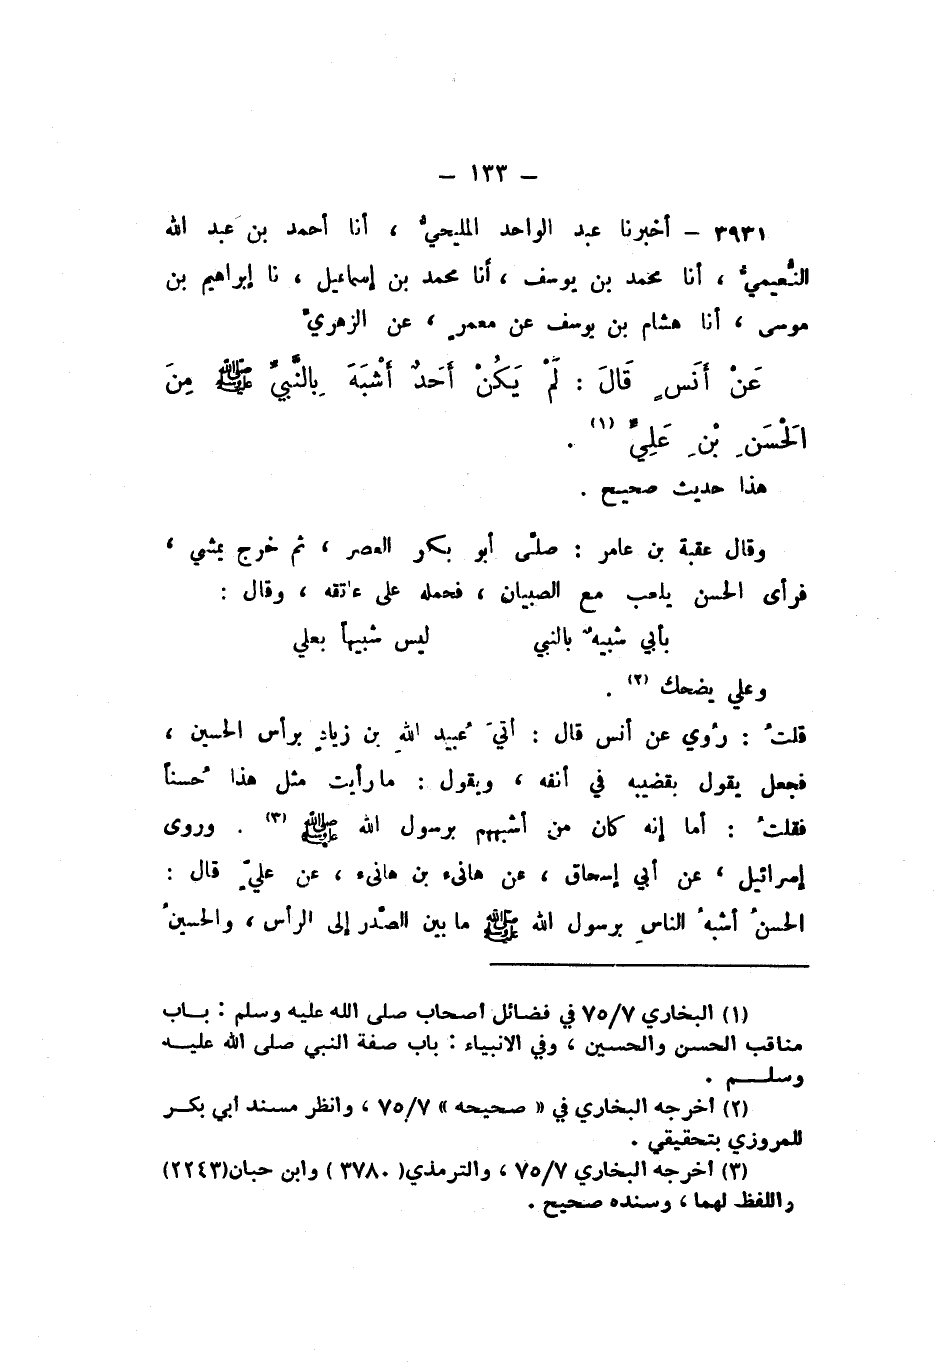 – ١٣٣ –
٣٩٣١ – أخبرنا عبد الواحد المليحيُّ ، أنا أحمد بن عبد الله
النُّعيميُّ ، أنا محمد بن يوسف ، أنا محمد بن إسماعيل ، نا إبراهيم بن
موسى ، أنا هشام بن يوسف عن معمرٍ ، عن الزهريِّ
عَنْ أَنَسٍ قَالَ : لَمْ يَكُنْ أَحَدٌ أَشْبَهَ بِالنَّبِيِّ ﷺ مِنَ
الْحَسَنِ بْنِ عَلِيٍّ (١) .
هذا حديث صحيح .
وقال عقبة بن عامر : صلَّى أبو بكر العصر ، ثم خرج يمشي ،
فرأى الحسن يلعب مع الصبيان ، فحمله على عاتقه ، وقال :
بأبي شبيهٌ بالنبي ليس شبيهاً بعلي
وعلي يضحك (٢) .
قلتُ : رُوي عن أنس قال : أتيَ عُبيد اللهِ بن زيادٍ برأس الحسين ،
فجعل يقول بقضيبه في أنفه ، ويقول : ما رأيت مثل هذا حُسناً
فقلتُ : أما إنه كان من أشبههم برسول الله ﷺ (٣) . وروى
إسرائيل ، عن أبي إسحاق ، عن هانىء بن هانىء ، عن عليٍّ قال :
الحسنُ أشبهُ الناسِ برسول الله ﷺ ما بين الصَّدر إلى الرأس ، والحسينُ
(١) البخاري ٧٥/٧ في فضائل أصحاب صلى الله عليه وسلم : بـاب
مناقب الحسن والحسين ، وفي الانبياء : باب صفة النبي صلى الله عليـه
وسلـم .
(٢) أخرجه البخاري في « صحيحه » ٧٥/٧ ، وانظر مسند أبي بكـر
للمروزي بتحقيقي .
(٣) أخرجه البخاري ٧٥/٧ ، والترمذي( ٣٧٨٠ ) وابن حبان(٢٢٤٣)
واللفظ لهما ، وسنده صحيح .